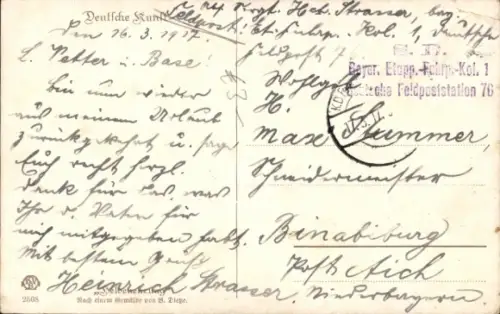 Deutsche Kunst
Feldpost! Hct. Strasser, bay.
Et. Fuhrp. Kol. 1, Deutsche
Feldpost 76
den 16.3.1917.
L. Vetter u. Base!
bin nun wieder
aus meinem Urlaub
zurückgekehrt u. sage
Euch recht herzl.
Dank für das was
Ihr d. Vaten für
mich mitgegeben habt.
Mit bestem Gruß
Heinrich Strasser
Bayer. Etapp.-Fuhrp.-Kol. 1
Deutsche Feldpoststation 76
Wohlgeb.
H.
Max Stummer,
Schneidermeister
Binabiburg
Post Aich
Niederbayern
2608
Nach einem Gemälde von B. Dietze.